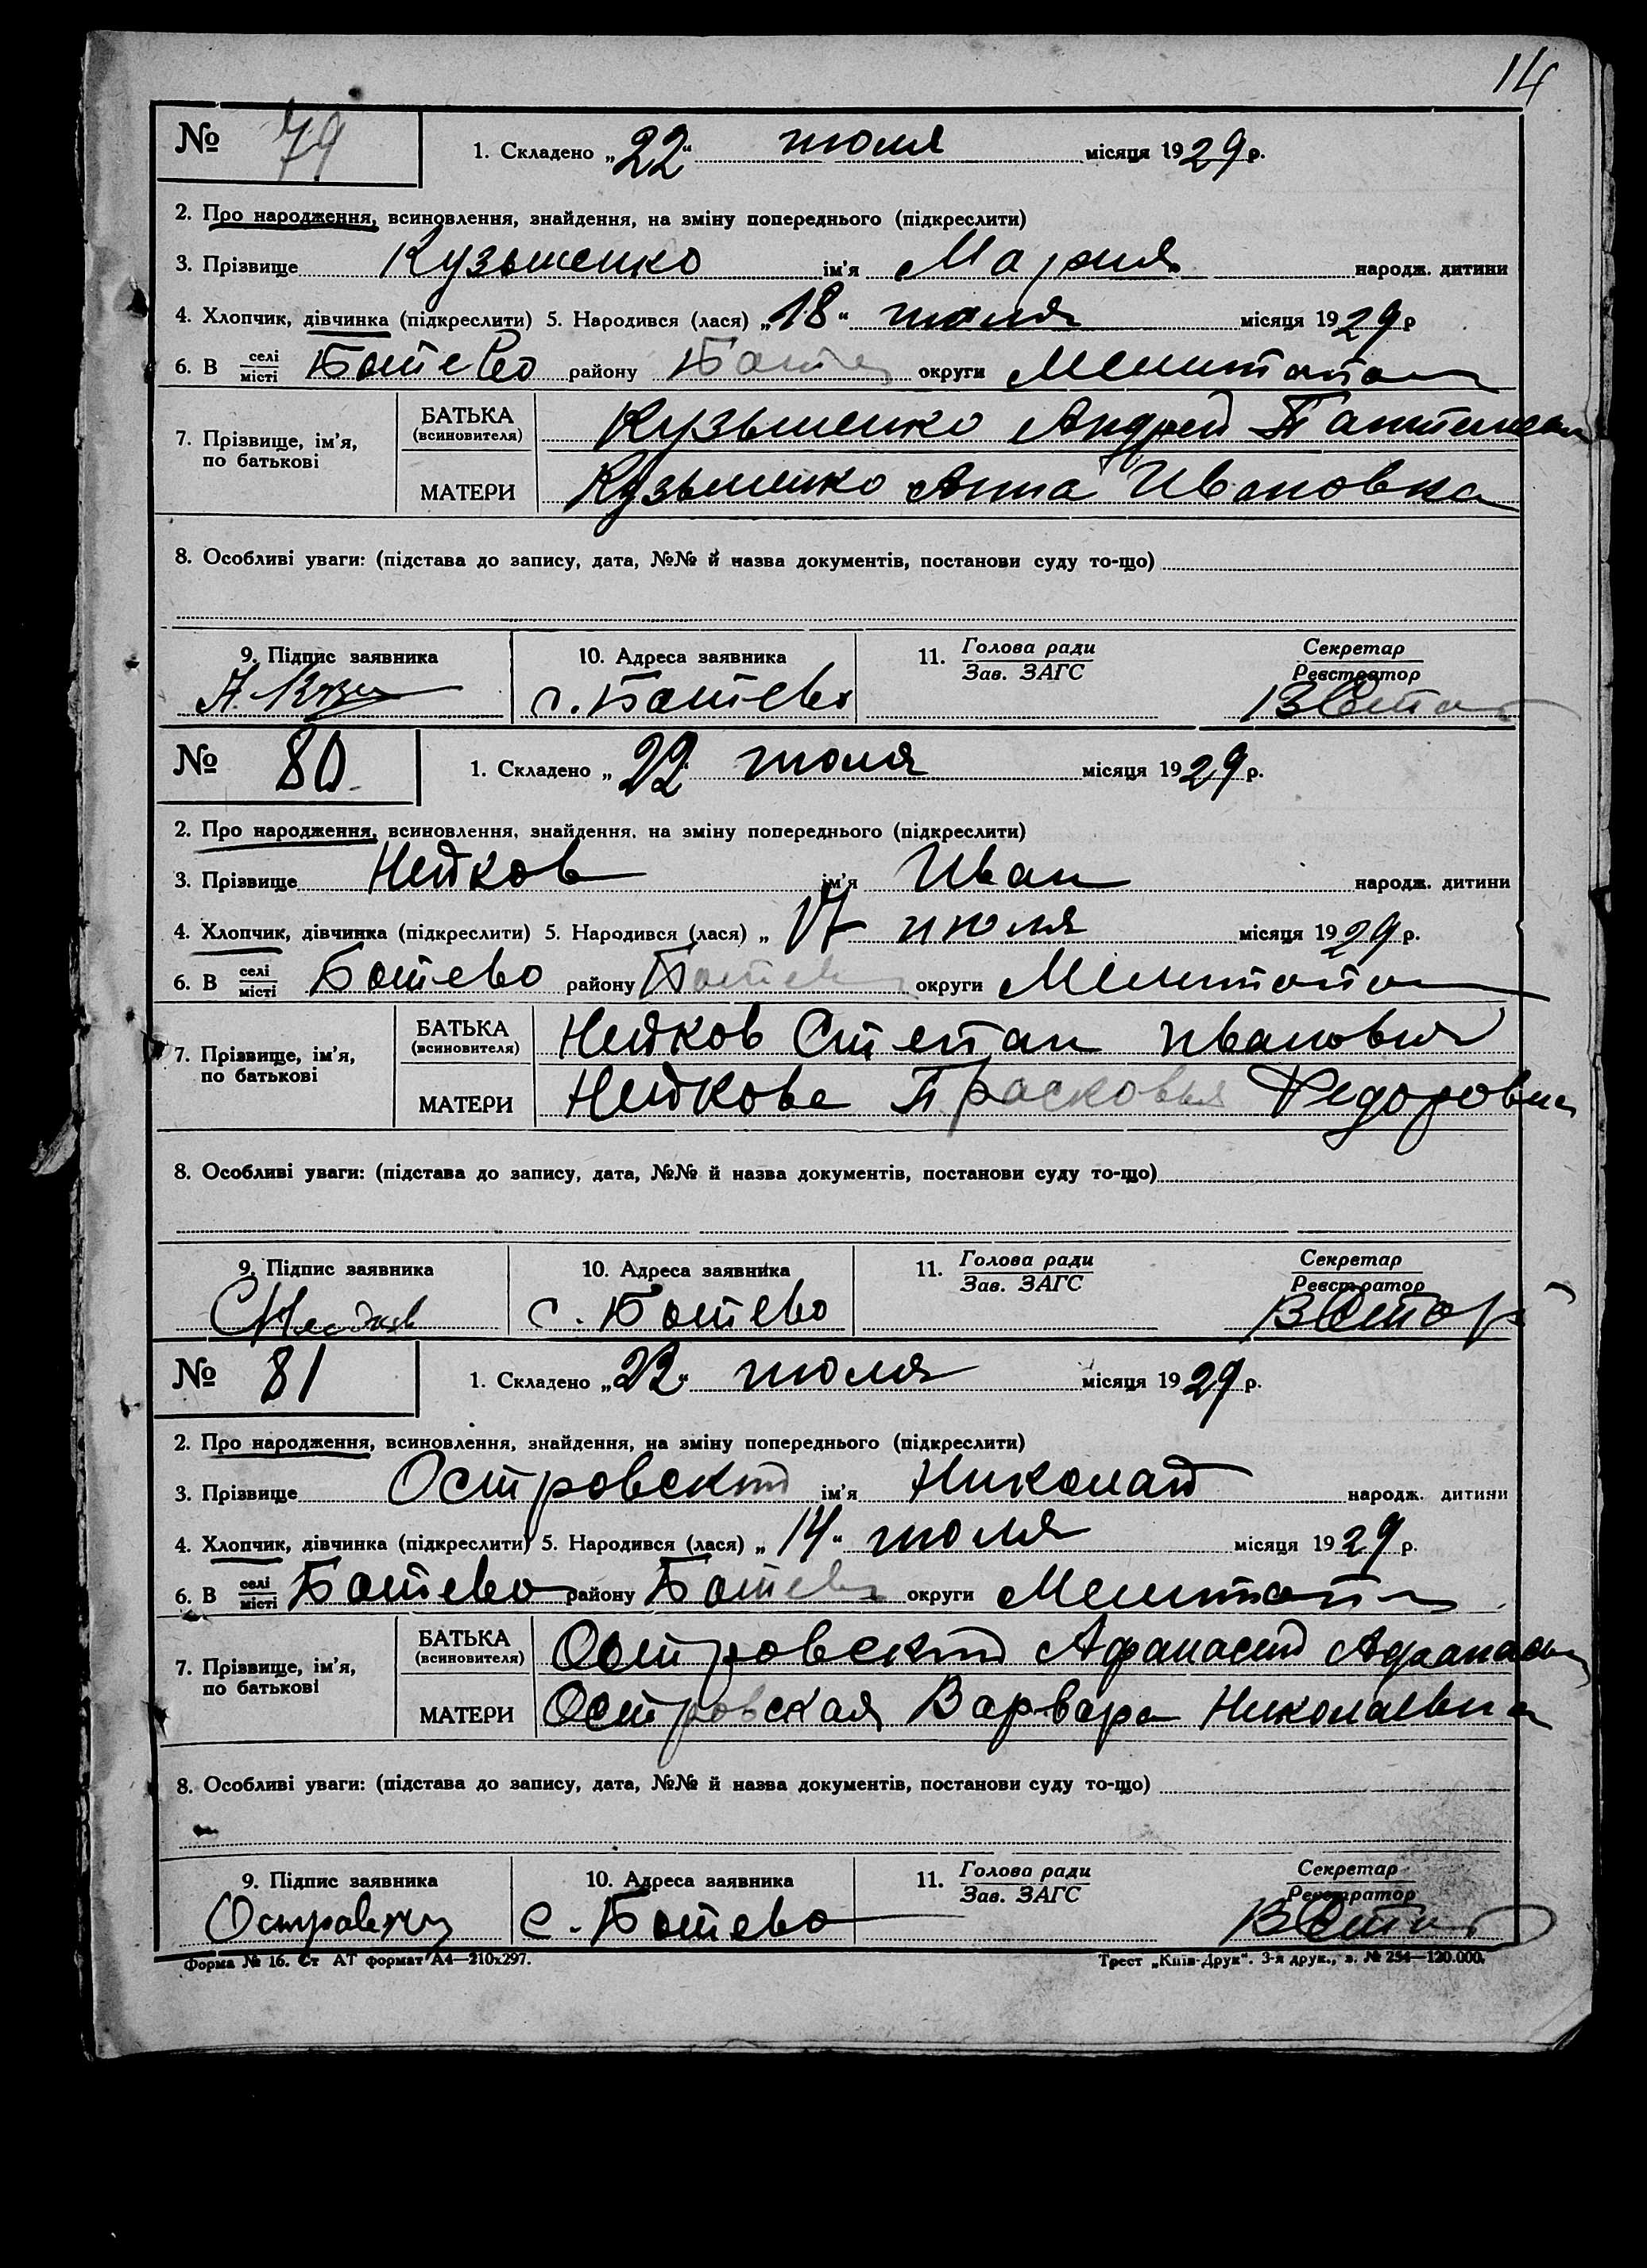 14
№ 79 1. Складено „22" июля місяця 1929 р.
2. Про народження, всиновлення, знайдення, на зміну попереднього (підкреслити)
3. Прізвище Кузьменко ім'я Мария народж. дитини
4. Хлопчик, дівчинка (підкреслити) 5. Народився (лася) „18" июля місяця 1929 р
6. В селі/місті Ботево району Ботев округи Мелитопол
7. Прізвище, ім'я, по батькові
БАТЬКА (всиновителя) Кузьменко Андрей
МАТЕРИ Кузьменко Анна Ивановна
8. Особливі уваги: (підстава до запису, дата, №№ й назва документів, постанови суду то-що)
9. Підпис заявника 10. Адреса заявника 11. Голова ради/Зав. ЗАГС Секретар/Реєстратор
с. Ботево
№ 80 1. Складено „22" июля місяця 1929 р.
2. Про народження, всиновлення, знайдення, на зміну попереднього (підкреслити)
3. Прізвище Нейков ім'я Иван народж. дитини
4. Хлопчик, дівчинка (підкреслити) 5. Народився (лася) „17 июля місяця 1929 р.
6. В селі/місті Ботево району Ботев округи Мелитопол
7. Прізвище, ім'я, по батькові
БАТЬКА (всиновителя) Нейков Степан Иванович
МАТЕРИ Нейкова Прасковья Федоровна
8. Особливі уваги: (підстава до запису, дата, №№ й назва документів, постанови суду то-що)
9. Підпис заявника 10. Адреса заявника 11. Голова ради/Зав. ЗАГС Секретар/Реєстратор
с. Ботево
№ 81 1. Складено „22" июля місяця 1929 р.
2. Про народження, всиновлення, знайдення, на зміну попереднього (підкреслити)
3. Прізвище Островский ім'я Николай народж. дитини
4. Хлопчик, дівчинка (підкреслити) 5. Народився (лася) „14" июля місяця 1929 р.
6. В селі/місті Ботево району Ботев округи Мелитопол
7. Прізвище, ім'я, по батькові
БАТЬКА (всиновителя) Островский Афанасий Афанасьев
МАТЕРИ Островская Варвара Николаевна
8. Особливі уваги: (підстава до запису, дата, №№ й назва документів, постанови суду то-що)
9. Підпис заявника 10. Адреса заявника 11. Голова ради/Зав. ЗАГС Секретар/Реєстратор
с. Ботево
Форма № 16. Ст АТ формат А4—210х297. Трест „Київ-Друк". 3-я друк., з. № 254—120.000.